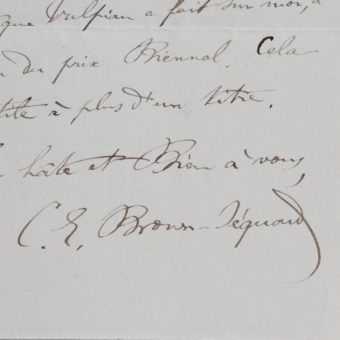 que Vulpian a fait sur moi, à
du prix Biennal. Cela
à plus d'un titre.
hâte et Bien à vous,
C. E. Brown-Séquard